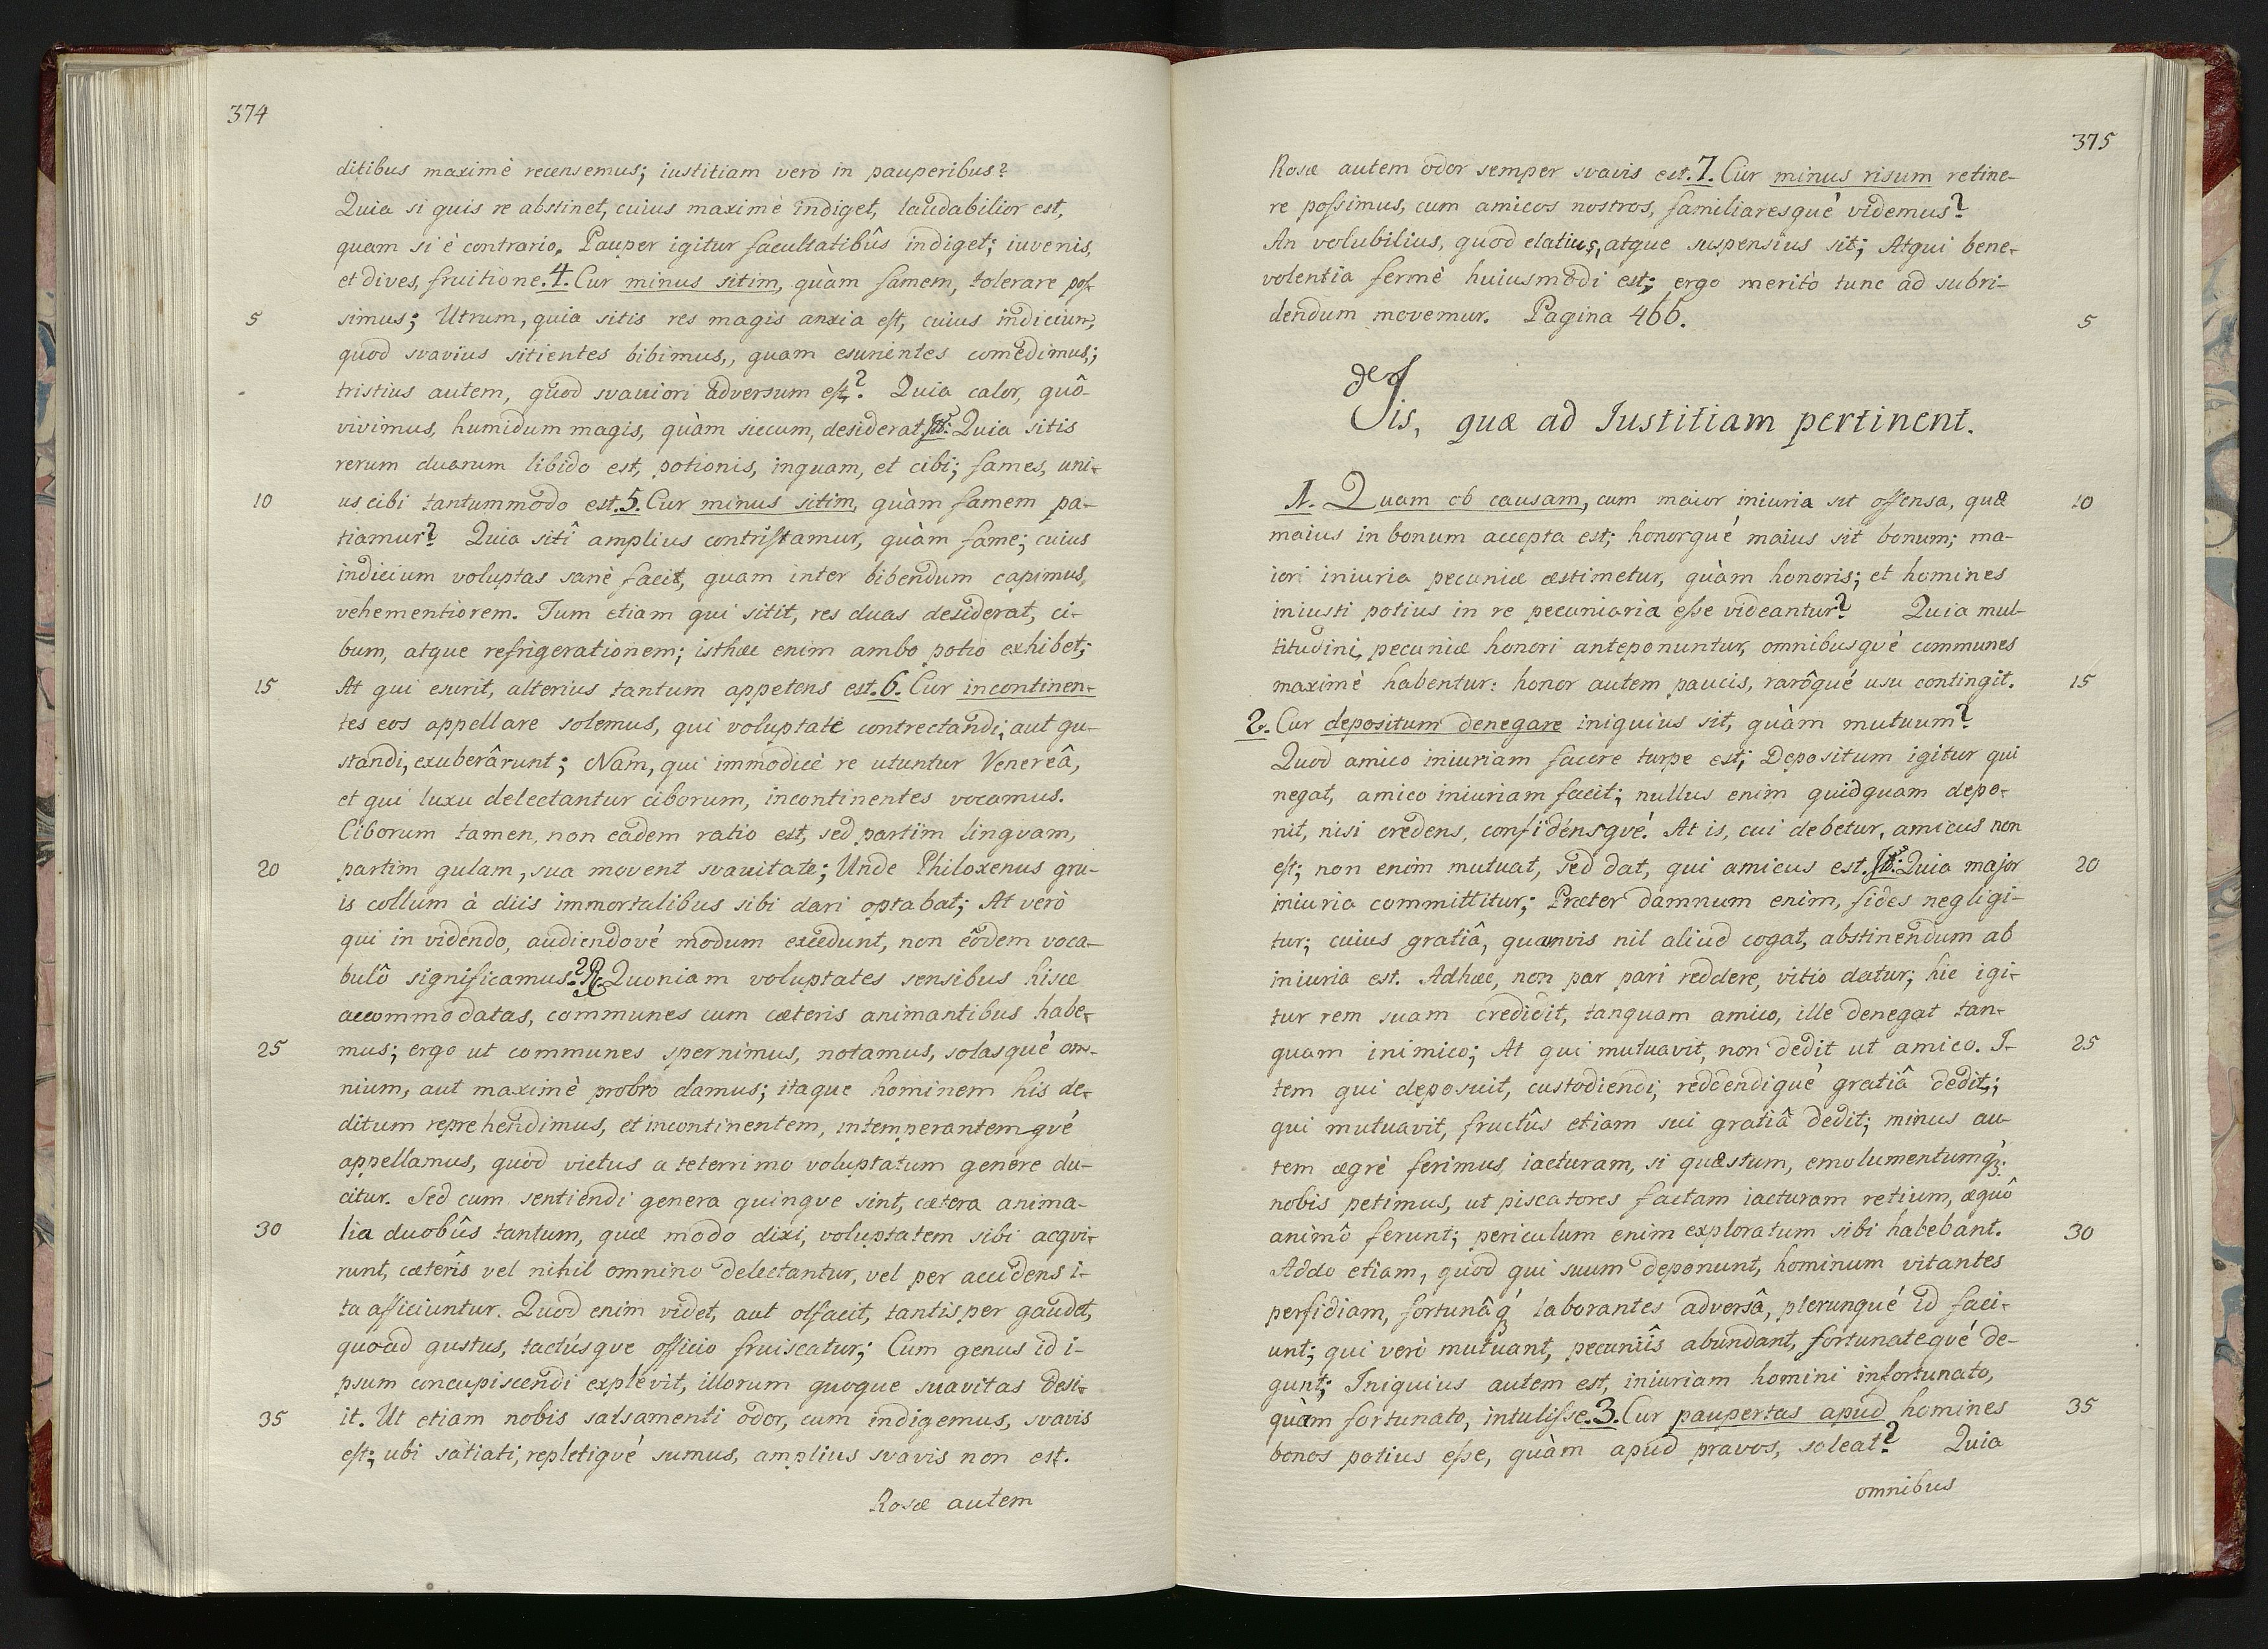 374
ditibus maximè recensemus; iustitiam verò in pauperibus?
Quia si quis re abstinet, cuius maximè indiget, laudabilior est,
quam si è contrario. Pauper igitur facultatibûs indiget; iuvenis,
et dives, fruitione. 4. Cur minus sitim, quàm famem, tolerare pos-
5 simus; Utrum, quia sitis res magis anxia est, cuius indicium,
quod svavius sitientes bibimus,, quam esurientes comedimus,;
tristius autem, quod svaviori adversum est,? Quia calor, quô-
vivimus, humidum magis, quàm siccum, desiderat, Quia sitis
rerum duarum libido est, potionis, inquam, et cibi; fames, uni-
10 us cibi tantummodo est. 5. Cur minus sitim, quàm famem pa-
tiamur? Quia sitî amplius contristamur, quàm fame; cuius
indicium voluptas sanè facit, quam inter bibendum capimus,
vehementiorem. Tum etiam qui sitit, res duas desiderat, ci-
bum, atque refrigerationem; isthæc enim ambo potio exhibet;
15 At qui esurit, alterius tantum appetens est. 6. Cur incontinen-
tes eos appellare solemus, qui voluptate contrectandi, aut gu-
standi, exuberârunt; Nam, qui immodicè re utuntur Venereâ,
et qui luxu delectantur ciborum, incontinentes vocamus.
Ciborum tamen, non eadem ratio est, sed partim linguam,
20 partim gulam, sua movent svavitate; Unde Philoxenus gru-
is collum à diis immortalibus sibi dari optabat; At verò
qui in videndo, audiendové modum excedunt, non eôdem voca-
bulô significamus? R. Quoniam voluptates sensibus hisce
accommodatas, communes cum cæteris animantibus habe-
25 mus; ergo ut communes spernimus, notamus, solasqué om-
nium, aut maximè probro damus; itaque hominem his de-
ditum reprehendimus, et incontinentem, intemperantemqvé
appellamus, quòd victus a teterrimo voluptatum genere du-
citur. Sed cum sentiendi genera quinqve sint, cætera anima-
30 lia duobûs tantum, quæ modo dixi, voluptatem sibi acqvi-
runt, cæterîs vel nihil omnino delectantur, vel per accidens i-
ta afficiuntur. Quod enim videt, aut olfacit, tantisper gaudet,
quoad gustus, tactúsqve officio fruiscatur; Cum genus id i-
psum concupiscendi explevit, illorum quoque suavitas desi-
35 it. Ut etiam nobis salsamenti odor, cum indigemus, svavis
est; ubi satiati, repletiqvé sumus, amplius svavis non est.
Rosæ autem
375
Rosæ autem odor semper svavis est. 7. Cur minus risum retine-
re possimus, cum amicos nostros, familiaresqué videmus?
An volubilius, quod elatius, atque suspensius sit; Atqui bene-
volentia fermè huiusmodi est; ergo meritò tunc ad subri-
dendum movemur. Pagina 466. 5
de Jis, quæ ad Iustitiam pertinent.
1. Quam ob causam, cum maior iniuria sit offensa, quæ 10
maius in bonum accepta est; honorqué maius sit bonum; ma-
iori iniuria pecuniæ æstimetur, quàm honoris; et homines
iniusti potius in re pecuniaria esse videantur? Quia mul-
titudini, pecuniæ honori anteponuntur, omnibusqvé communes
maximè habentur: honor autem paucis, rarôqué usu contingit. 15
2. Cur depositum denegare iniquius sit, quàm mutuum?
Quod amico iniuriam facere turpe est; Depositum igitur qui
negat, amico iniuriam facit; nullus enim quidquam depo-
nit, nisi credens, confidénsqvé. At is, cui debetur, amicus non
est; non enim mutuat, sed dat, qui amicus est. Quia major 20
iniuria committitur; Præter damnum enim, fides negligi-
tur; cuius gratiâ, quamvis nil aliud cogat, abstinendum ab
iniuria est. Adhæc, non par pari reddere, vitio datur; hic igi-
tur rem suam credidit, tanquam amico, ille denegat tan-
quam inimico; At qui mutuavit, non dedit ut amico. I- 25
tem qui deposuit, custodiendi, reddendiqué gratiâ dedit,;
qui mutuavit, fructûs etiam sui gratiâ dedit; minus au-
tem ægrè ferimus iacturam, si quæstum, emolumentumq́;
nobis petimus, ut piscatores factam iacturam retium, æquô
animô ferunt; periculum enim exploratum sibi habebant. 30
Addo etiam, quòd qui suum deponunt, hominum vitantes
perfidiam, fortunâq́ laborantes adversâ, plerunqué id faci-
unt; qui verò mutuant, pecuniîs abundant, fortunateqvé de-
gunt; Iniquius autem est, iniuriam homini infortunato,
quàm fortunato, intulisse. 3. Cur paupertas apud homines 35
bonos potius esse, quàm apud pravos, soleat? Quia
omnibus